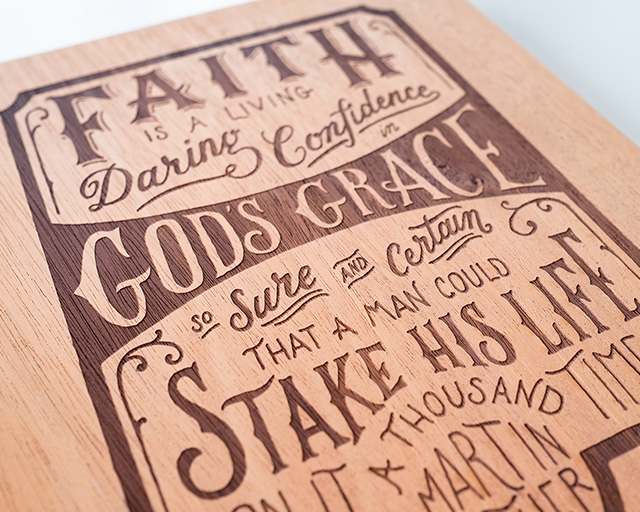 FAITH
IS A LIVING
Daring Confidence
in
GOD'S GRACE
so Sure AND Certain
THAT A MAN COULD
STAKE HIS LIFE
ON IT A THOUSAND TIME
MARTIN